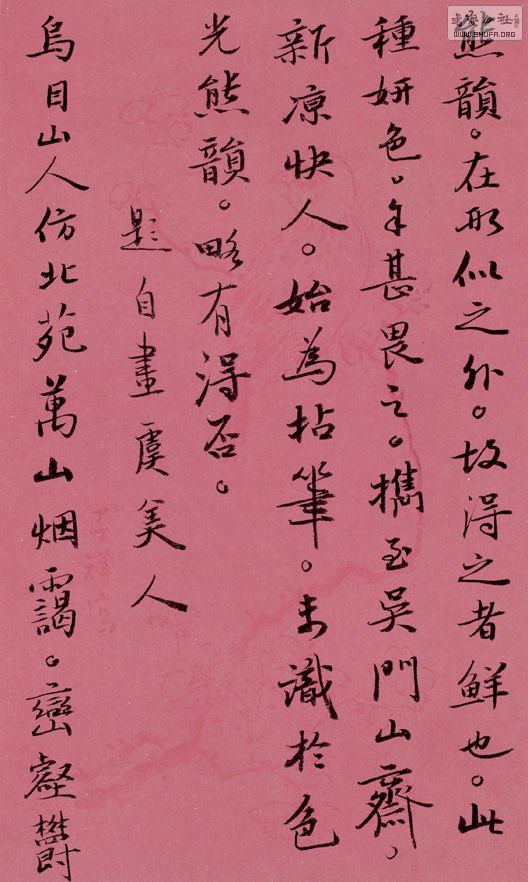 態韻。在形似之外。故得之者鮮也。此
種妍色。余甚畏之。攜至吳門山齋。
新凉快人。始為拈筆。未識於色
光態韻。略有得否。
題自畫虞美人
烏目山人仿北苑萬山烟靄。巒壑欝
子祥寫
WWW.SHUFA.ORG